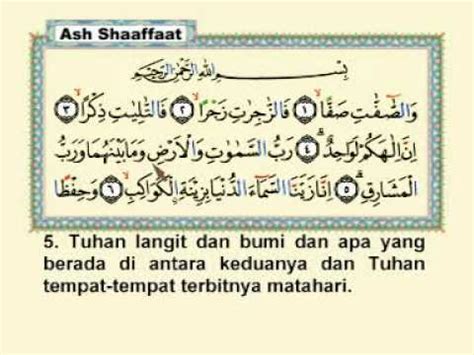 Ash Shaaffaat
بِسْمِ اللهِ الرَّحْمٰنِ الرَّحِيْمِ
وَالصّٰٓفّٰتِ صَفًّاۙ ﴿١﴾ فَالزّٰجِرٰتِ زَجْرًاۙ ﴿٢﴾ فَالتّٰلِيٰتِ ذِكْرًاۙ ﴿٣﴾
اِنَّ اِلٰهَكُمْ لَوَاحِدٌۗ ﴿٤﴾ رَبُّ السَّمٰوٰتِ وَالْاَرْضِ وَمَا بَيْنَهُمَا وَرَبُّ
الْمَشَارِقِۗ ﴿٥﴾ اِنَّا زَيَّنَّا السَّمَاۤءَ الدُّنْيَا بِزِيْنَةِ ِۨالْكَوَاكِبِۙ ﴿٦﴾ وَحِفْظًا
5. Tuhan langit dan bumi dan apa yang
berada di antara keduanya dan Tuhan
tempat-tempat terbitnya matahari.